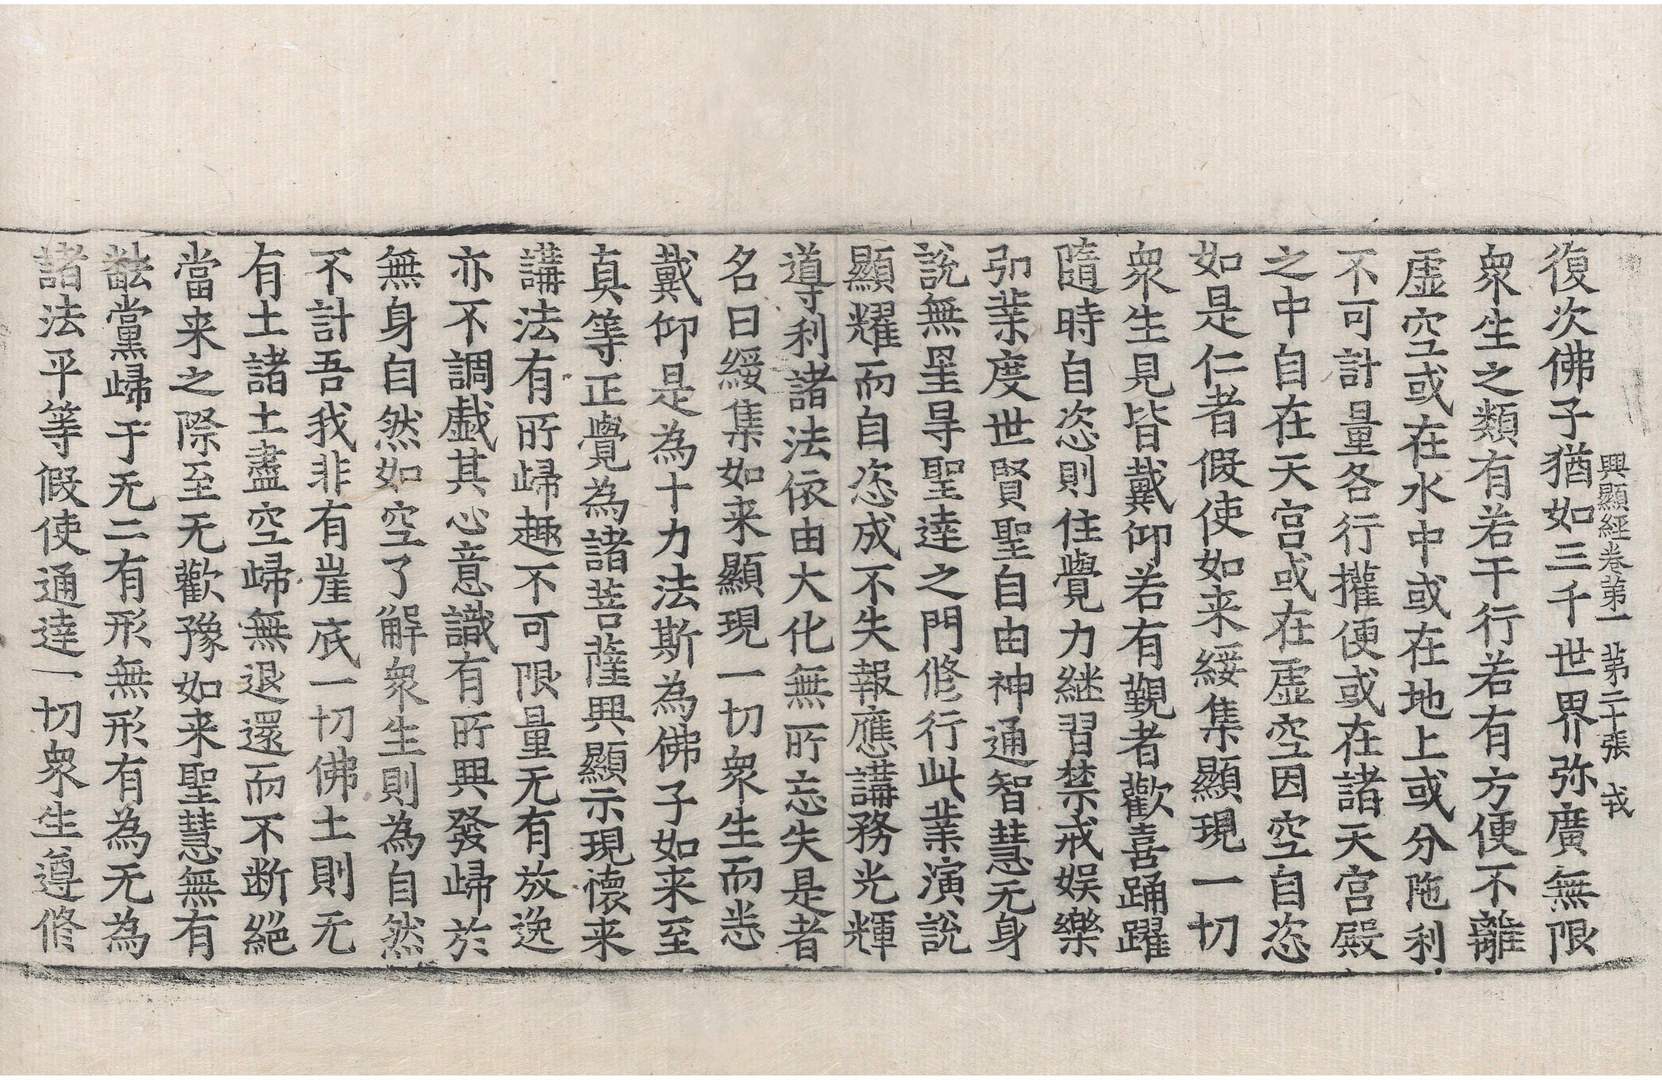 興顯經卷第一　第二十張　戎
復次佛子猶如三千世界弥廣無限
衆生之類有若干行若有方便不離
虛空或在水中或在地上或分陁利
不可計量各行攉便或在諸天宮殿
之中自在天宮或在虛空因空自恣
如是仁者假使如来綏集顯現一切
衆生見皆戴仰若有覲者歡喜踊躍
隨時自恣則住覺力継習禁戒娛樂
邠業度世賢聖自由神通智慧无身
說無星㝵聖逹之門修行此業演說
顯耀而自恣成不失報應講務光輝
導利諸法依由大化無所忘失是者
名曰綏集如来顯現一切衆生而悉
戴仰是為十力法斯為佛子如来至
真等正覺為諸菩薩興顯示現懷来
講法有所歸趣不可限量无有放逸
亦不調戱其心意識有所興發歸於
無身自然如空了解衆生則為自然
不計吾我非有崖底一切佛土則无
有土諸土盡空歸無退還而不断絕
當来之際至无歡豫如来聖慧無有
黨歸于无二有形無形有為无為
諸法平等假使通逹一切衆生遵修